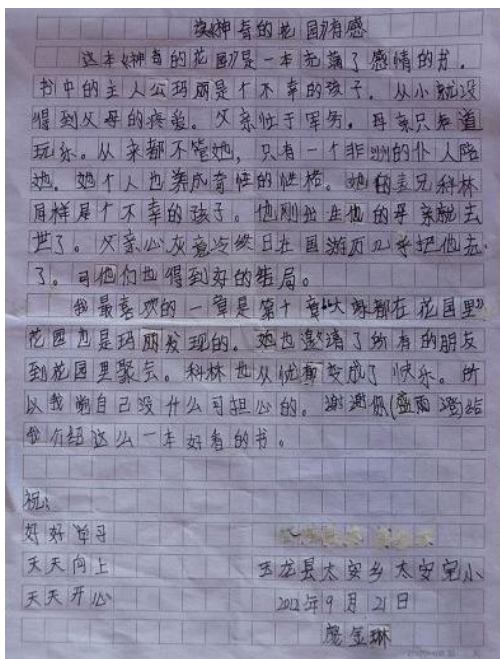 读《神奇的花园》有感
这本《神奇的花园》是一本充满了感情的书。
书中的主人公玛丽是个不幸的孩子。从小就没
得到父母的疼爱。父亲忙于军务。母亲只知道
玩乐。从来都不管她，只有一个非洲的仆人陪
她。她个人也养成奇怪的性格。她的表兄科林
同样是个不幸的孩子。他刚出生他的母亲就去
世了。父亲心灰意冷终日在国游历几乎把他忘
了。可他们也得到好的结局。
我最喜欢的一章是第十章“大家都在花园里”
花园也是玛丽发现的。她也邀请了所有的朋友
到花园里聚会。科林也从忧郁变成了快乐。所
以我明自己没什么可担心的。谢谢你(盛雨)给
我介绍这么一本好看的书。
祝：
好好学习
天天向上 玉龙县太安乡太安完小
天天开心 2012年9月21日
金琳